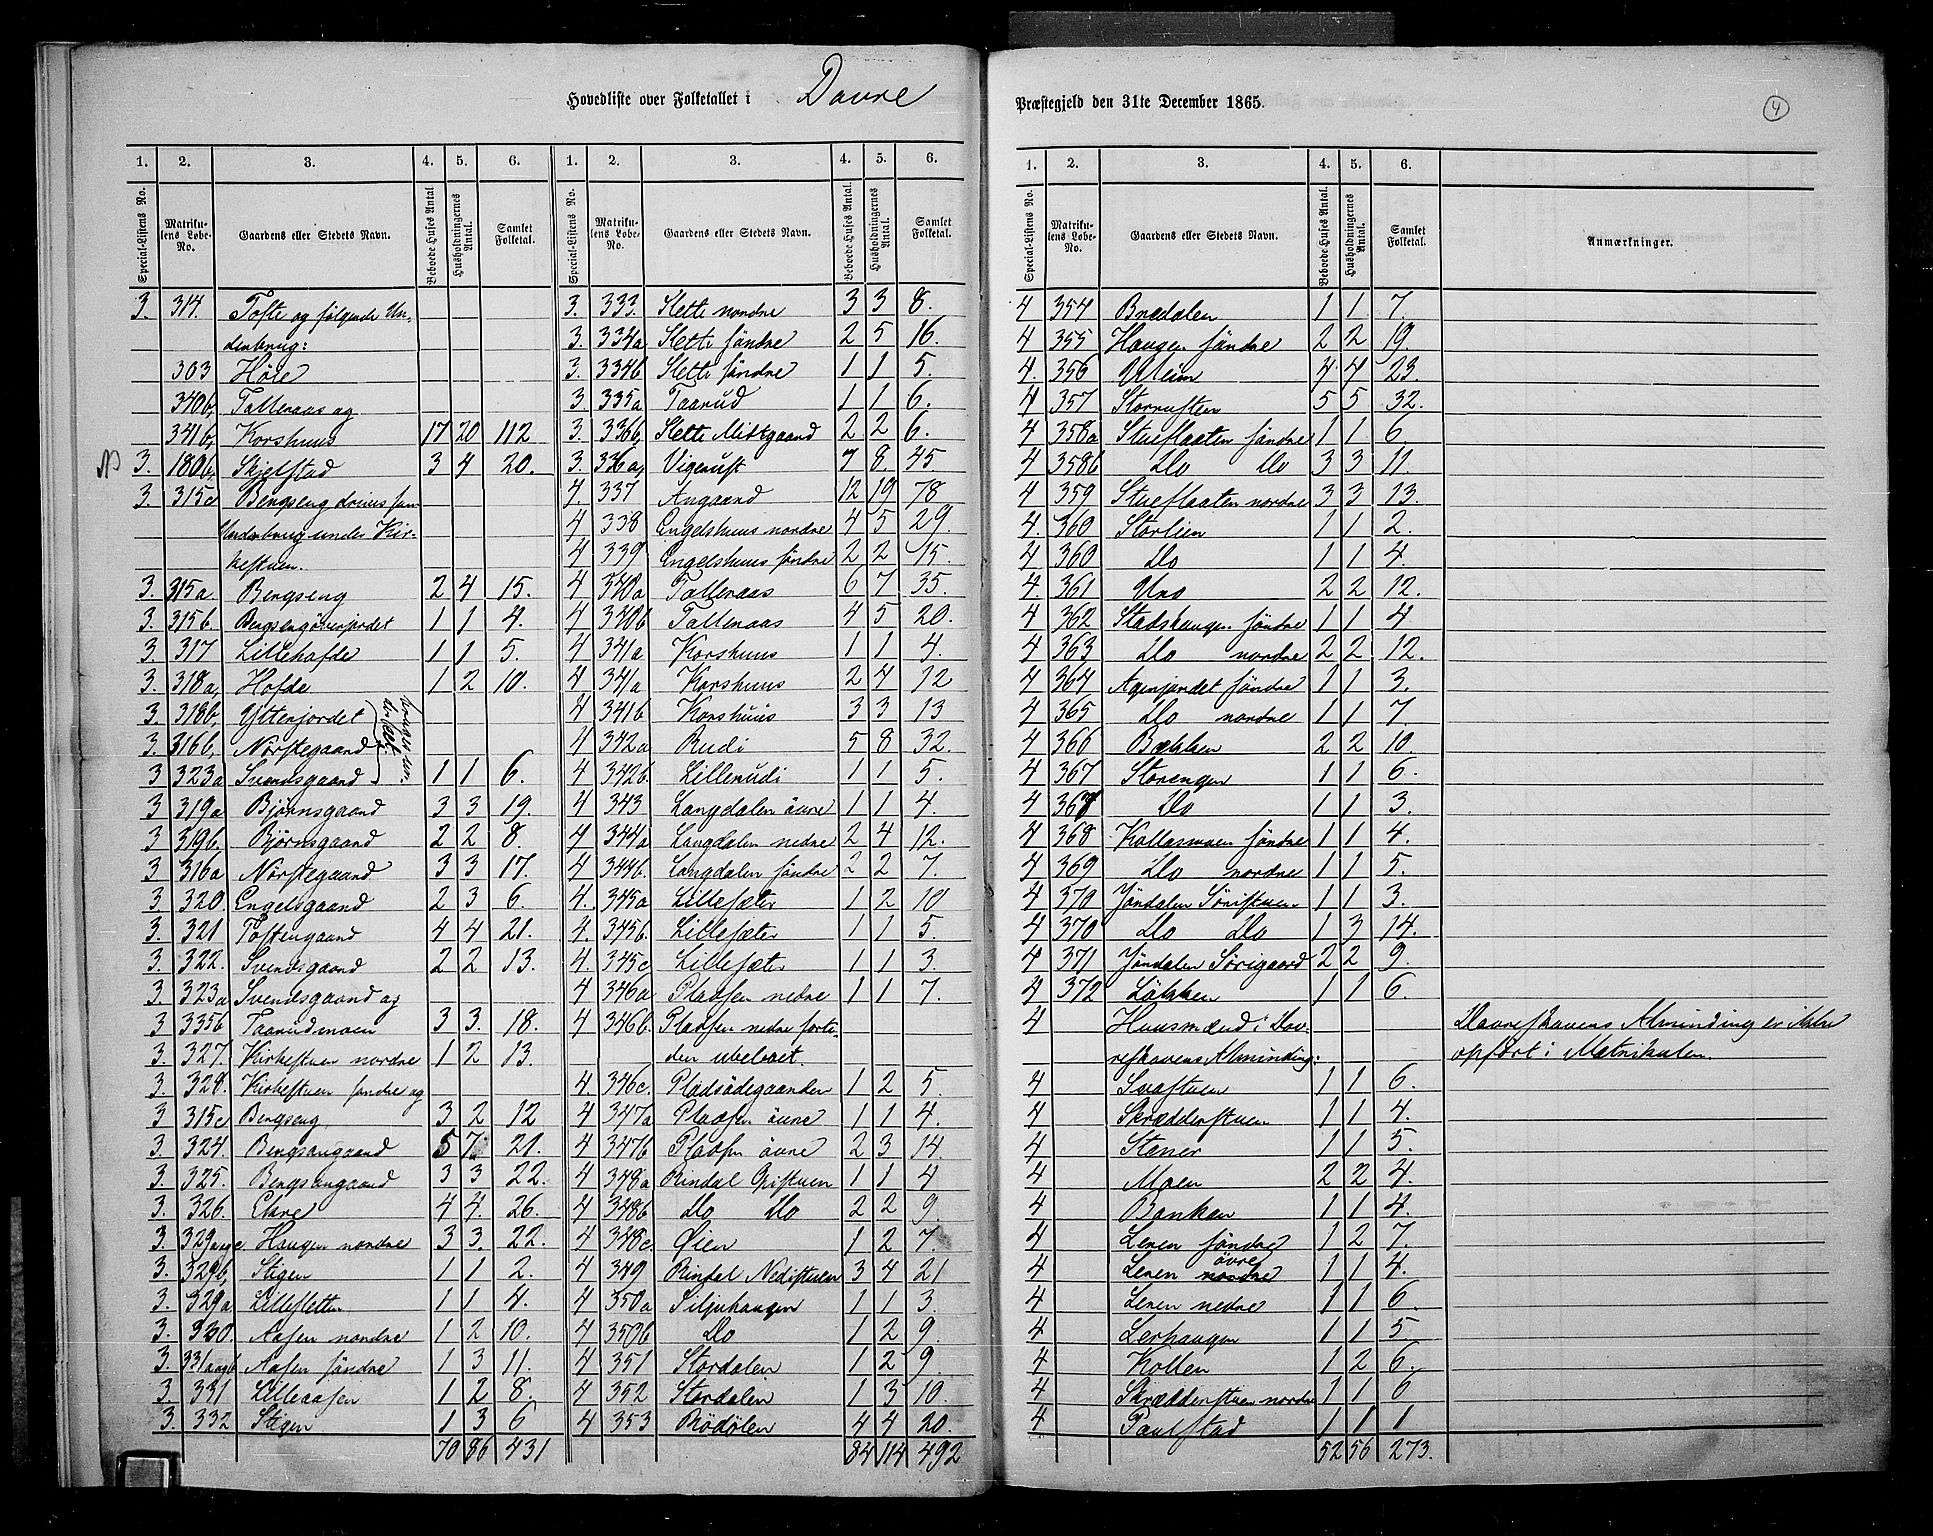 Hovedliste over Folketallet i Davre
Præstegjeld den 31te December 1865.
4
1. 2. 3. 4. 5. 6. 1. 2. 3. 4. 5. 6.
Special-Listens No. Matrikulens Løbe-No. Gaardens eller Stedets Navn. Beboede Huses Antal Husholdningernes Antal. Samlet Folketal. Special-Listens No. Matrikulens Løbe-No. Gaardens eller Stedets Navn. Beboede Huses Antal. Husholdningernes Antal. Samlet Folketal.
3. 314. Tofte og følgende Un-
derbrug:
303 Hole
340b, Talleraas og
341b, Korshuus 17 20 112
3. 180b, Skjelstad 3 4 20.
3. 315c Bergseng drives som
Underbrug under Kir-
kestuen.
3. 315a. Bergseng 2 4 15.
3. 315b. Bergsengöverjordet 1 1 4.
3. 317 Lillehofde 1 1 5.
3. 318a, Hofde 1 2 10.
3. 318b, Ytterjordet
3. 316b, Nørstegaard
3 323a Svendsgaard 1 1 6.
3 319a Bjørnsgaard 3 3 19.
3 319b. Bjørnsgaard 2 2 8.
3 316a Nørstegaard 3 3 17.
3 320. Engelsgaard 2 3 6.
3. 321 Toftengaard 4 4 21.
3. 322. Svendsgaard 2 2 13.
3. 323a Svendsgaard og
3 335b Taarudmoen 3 3. 18.
3. 327. Kirkestuen nordre 1 2 13.
3. 328. Kirkestuen søndre og
3 315c Bergseng 3 2 12
3. 324. Bergsangaard 5 7 21.
3. 325. Bergsangaard 3 3 22.
3. 326. Ekre 4 4. 26.
3. 329 Haugen nordre 3 3. 22.
3. 329b, Stigen 1 1 2.
3. 329a Lillesletten 1 1 4.
3. 330. Aasen nordre 1 2 10.
3. 331aogb Aasen søndre 1 3 11.
3. 331 Lilleaasen 1 2 8.
3. 332 Stigen 1 3 6
70 86 431
3. 333. Slette nordre 3 3 8.
3. 334a Slette søndre 2 5 16.
3. 334b Slette søndre 1 1 5.
3. 335a Taarud 1 1 6.
3. 336b, Slette Midtgaard 2 2 6.
3. 336a, Vigerust 7 8. 45
4. 337 Angaard 12 19 78
4 338 Engelshuus nordre 4 5 29
4 339 Engelshuus søndre 2 2 15.
4 340a Talleraas 6 7 35.
4 340b Talleraas 4 5 20.
4 341a Korshuus 1 1 4.
4 341a Korshuus 2 4 12
4 341b Korshuus 3 3 13
4 342a Rudi 5 8 32.
4 342b. Lillerudi 1 1 5.
4 343 Langdalen övre 1 1 4.
4 344a Langdalen nedre 2 4 12.
4 344b. Langdalen søndre 2 2 7.
4. 345a Lillesæter 1 2 10
4. 345b. Lillesæter 1 1 5.
4. 345c Lillesæter 1 1 3.
4 346a Pladsen nedre 1 1 7.
4 346b Pladsen nedre forti-
den ubeboet.
4 346c. Pladsödegaarden 1 2 5.
4 347a Pladsen övre 1 1 4.
4 347b Pladsen övre 2 3 14.
4 348a Rindal Opistuen 1 1 4
4 348b Do Do 2 2 9
4 348c. Øien 1 2 7.
4 349 Rindal Nedistuen 3 4 21
4 350a Siljuhaugen 1 1 3.
4 350b Do 1 2 9.
4 351 Stordalen 1 2 9.
4 352 Stordalen 1 3 10.
4 353 Brödölen 4 4 20.
84 114 492
1. 2. 3. 4. 5. 6.
Special-Listens No. Matrikulens Løbe-No. Gaardens eller Stedets Navn. Beboede Huses Antal. Husholdningernes Antal. Samlet Folketal. Anmærkninger.
4 354 Bredalen 1 1 7.
4 355 Haugen søndre 2 2 19
4. 356 Uleim 4 4 23.
4 357 Storruften 5 5 32.
4 358a Stueflaaten søndre 1 1 6
4 358b Do Do 3 3 11.
4 359 Stueflaaten nordre 3 3 13.
4. 360 Storlien 1 1 2.
4 360 Do 1 1 4.
4. 361 Uro 2 2 12.
4 362 Stadshaugen søndre 1 1 4
4 363 Do nordre 2 2 12.
4 364 Agerjordet søndre 1 1 3.
4 365 Do nordre 1 1 7.
4 366 Bækken 2 2 10.
4 367 Storengen 1 1 6.
4 367 Do 1 1 3.
4 368 Kollasmoen søndre 1 1 4.
4 369 Do nordre 1 1 5.
4 370 Jöndalen Söristuen 1 1 3.
4 370 Do Do 1 3 14.
4 371 Jöndalen Sörigaard 2 2 9.
4 372 Løkken 1 1 6.
4 Huusmænd i Dov- Davreskovens Alminding er ikke
reskovens Alminding: opfört i Matrikulen.
4 Svastuen 1 1 6.
4 Skrædderstuen 1 1 4.
4 Stener 1 1 5.
4 Moen 2 2 4.
4 Banken 1 1 4.
4 Leren søndre 1 2 7.
4 Leren övre nordre 1 1 4.
4 Leren nedre 1 1 6.
4 Lerhaugen 1 1 5
4 Kollen 1 2 6.
4 Skrædderstuen nordre 1 1 6
4. Paulstad 1 1 1
52 56 273.